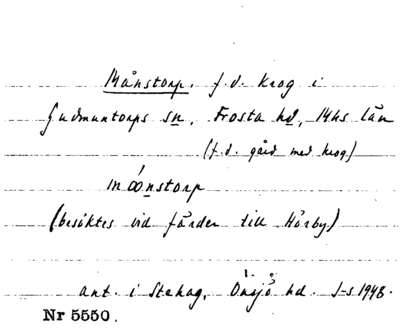 Månstorp, f.d. krog i
Gudmuntorps sn, Frosta hd, Mhs län
(f.d. gård med krog)
(besöktes vid färder till Hörby)
ant. i Stehag, Onsjö hd. 1948.
Nr 5550.